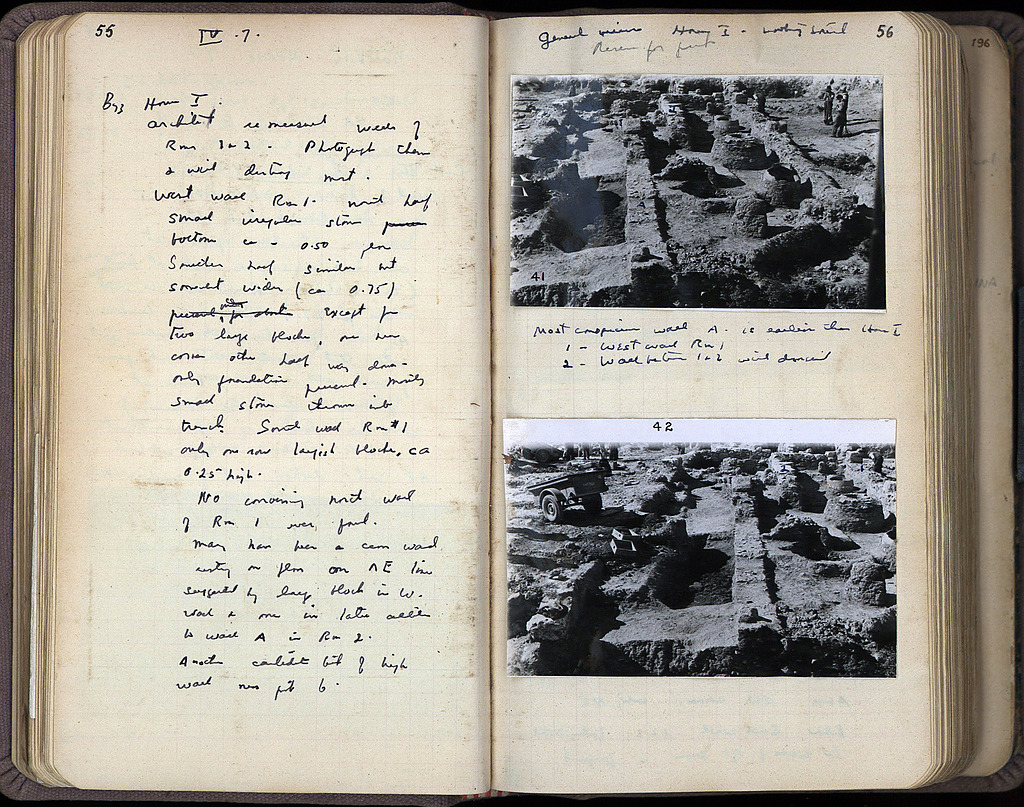 55
IV . 7 .
Byz House I .
architect remeasured walls of
Rms 1 & 2 - Photograph them
& will destroy most .
West wall Rm 1 . north half
small irregular stone
bottom ca - 0.50
Smaller half similar but
somewhat wider (ca 0.75)
except for
two large blocks, one near
corner other half way down -
only foundation present - mostly
small stone thrown into
trench. South wall Rm #1
only one row largish blocks, ca
0.25 high .
No convincing north wall
of Rm 1 was found .
may have been a cross wall
resting on floor on NE line
suggested by large block in W.
wall & one in later addition
to wall A in Rm 2 .
Another candidate bit of high
wall near pit 6 .
56
General views House I - looking South
41
Most conspicuous wall A - is earlier than House I
1 - West wall Rm 1
2 - Wall between 1 & 2
42
196